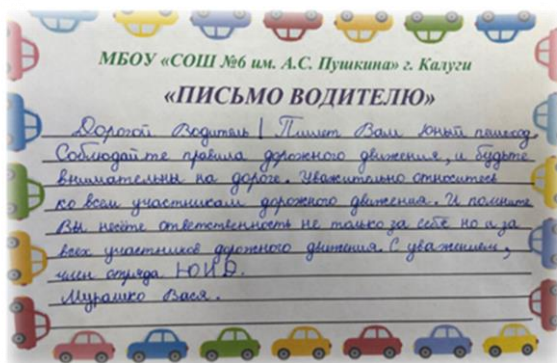 МБОУ «СОШ №6 им. А.С. Пушкина» г. Калуги
«ПИСЬМО ВОДИТЕЛЮ»
Дорогой Водитель! Пишет Вам юный пешеход.
Соблюдайте правила дорожного движения, и будьте
внимательны на дороге. Уважительно относитесь
ко всем участникам дорожного движения. И помните
Вы несёте ответственность не только за себя но и за
всех участников дорожного движения. С уважением,
член отряда ЮИД.
Мурашко Вася.